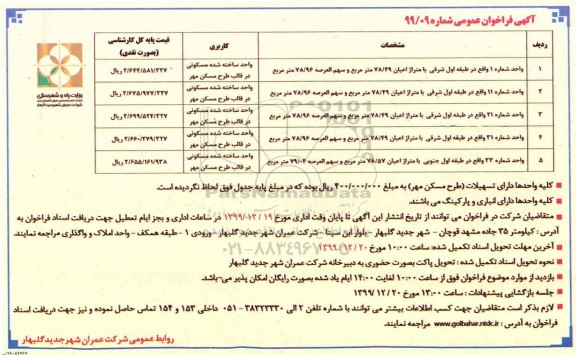 آگهی فراخوان عمومی شماره ۹۹/۰۹
وزارت راه و شهرسازی
ردیف
مشخصات
کاربری
قیمت پایه کل کارشناسی (بصورت نقدی)
۱
واحد شماره ۱ واقع در طبقه اول شرقی با متراژ اعیان ۷۸/۴۹ متر مربع و سهم العرصه ۷۸/۹۶ متر مربع
واحد ساخته شده مسکونی در قالب طرح مسکن مهر
۲/۶۴۴/۵۸۱/۳۲۷ ریال
۲
واحد شماره ۱ واقع در طبقه اول شرقی با متراژ اعیان ۷۸/۴۹ متر مربع و سهم العرصه ۷۸/۹۶ متر مربع
واحد ساخته شده مسکونی در قالب طرح مسکن مهر
۲/۶۷۵/۹۷۷/۳۲۷ ریال
۳
واحد شماره ۲۱ واقع در طبقه اول شرقی با متراژ اعیان ۷۸/۴۹ متر مربع و سهم العرصه ۷۸/۹۶ متر مربع
واحد ساخته شده مسکونی در قالب طرح مسکن مهر
۲/۶۹۹/۵۲۴/۳۲۷ ریال
۴
واحد شماره ۳۱ واقع در طبقه اول شرقی با متراژ اعیان ۷۸/۴۹ متر مربع و سهم العرصه ۷۸/۹۶ متر مربع
واحد ساخته شده مسکونی در قالب طرح مسکن مهر
۲/۶۶۰/۲۷۹/۳۲۷ ریال
۵
واحد شماره ۲۳ واقع در طبقه اول جنوبی با متراژ اعیان ۷۸/۵۷ متر مربع و سهم العرصه ۷۹/۰۴ متر مربع
واحد ساخته شده مسکونی در قالب طرح مسکن مهر
۲/۶۵۵/۱۶۱/۹۳۸ ریال
کلیه واحدها دارای تسهیلات (طرح مسکن مهر) به مبلغ ۴۰۰/۰۰۰/۰۰۰ ریال بوده که در مبلغ پایه جدول فوق لحاظ نگردیده است.
کلیه واحدها دارای انباری و پارکینگ می باشند.
متقاضیان شرکت در فراخوان می توانند از تاریخ انتشار این آگهی تا پایان وقت اداری مورخ ۱۳۹۹/۱۲/۱۹ در ساعات اداری و بجز ایام تعطیل جهت دریافت اسناد فراخوان به
آدرس: کیلومتر ۳۵ جاده مشهد قوچان - شهر جدید گلبهار - بلوار ابن سینا - شرکت عمران شهر جدید گلبهار - ورودی ۱ - طبقه همکف - واحد املاک و واگذاری مراجعه نمایند.
آخرین مهلت تحویل اسناد تکمیل شده: ساعت ۱۰:۰۰ مورخ ۱۳۹۹/۱۲/۲۰
نحوه تحویل اسناد تکمیل شده: تحویل پاکت بصورت حضوری به دبیرخانه شرکت عمران شهر جدید گلبهار
بازدید از موارد موضوع فراخوان فوق از ساعت ۱۰:۰۰ لغایت ۱۴:۰۰ ایام یاد شده بصورت رایگان امکان پذیر می باشد.
جلسه بازگشایی پیشنهادات: ساعت ۱۳:۰۰ مورخ ۱۳۹۹/۱۲/۲۰
لازم بذکر است متقاضیان جهت کسب اطلاعات بیشتر می توانند با شماره تلفن ۲ الی ۳۸۳۲۳۳۳۰ - ۰۵۱ داخلی ۱۵۳ و ۱۵۴ تماس حاصل نموده و نیز جهت دریافت اسناد
فراخوان به آدرس: www.golbahar.ntdc.ir مراجعه نمایند.
روابط عمومی شرکت عمران شهر جدید گلبهار
ParsNamadData
۰۲۱-۸۸۳۴۹۶۷۰